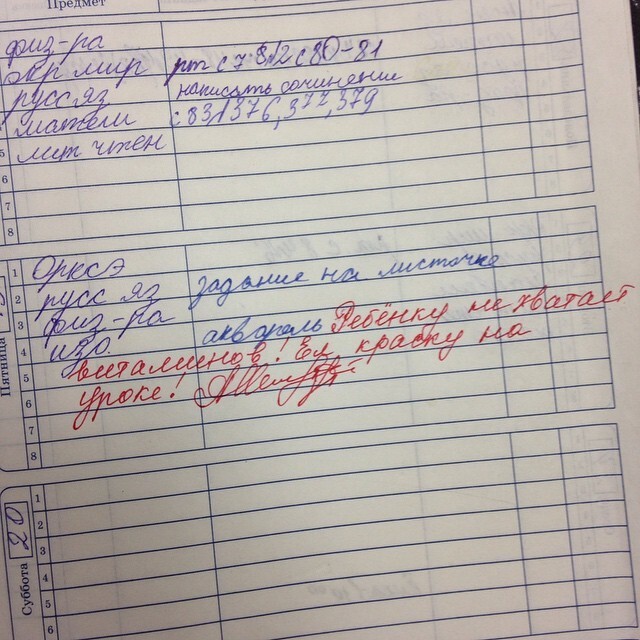 Предмет
физ-ра
окр мир рт с 78,12 с 80-81
русс яз написать сочинение
матем с 83, 376, 377, 379
5 лит чтен
6
7
8
1 ОРКСЭ
2 русс яз задание на листочке
3 физ-ра
4 изо. акварель Ребёнку не хватает
витаминов! Ел краску на
5 уроке!
6
7
8
Пятница
1
2
3
4
5
6
Суббота 20